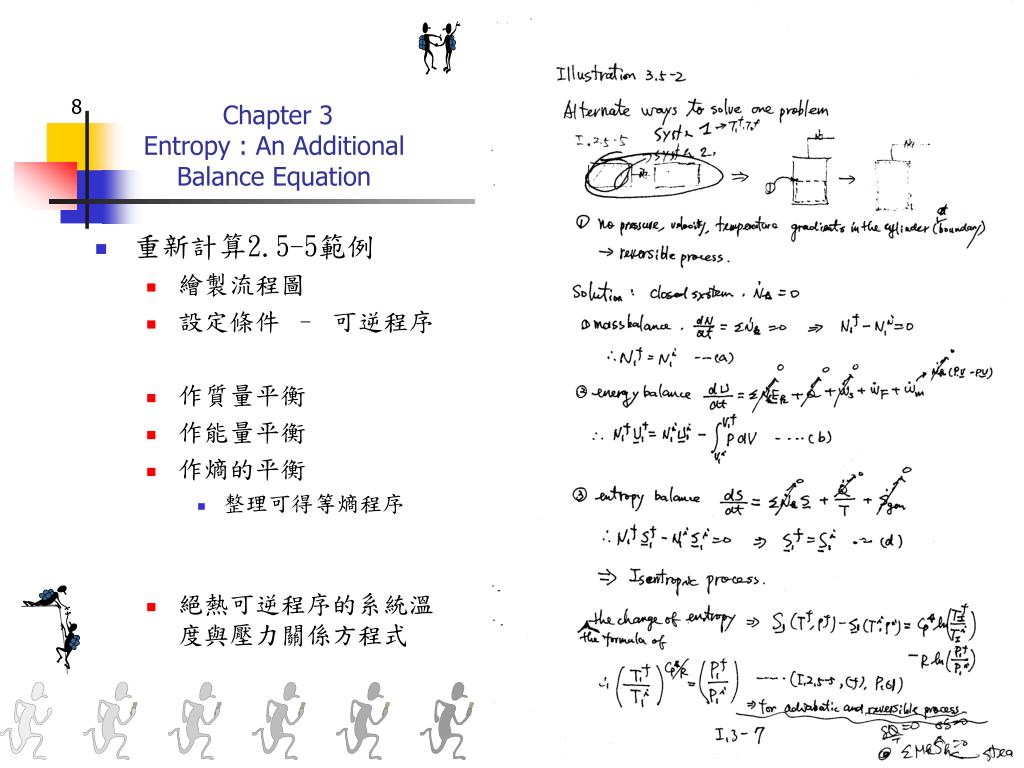 8
Chapter 3
Entropy : An Additional
Balance Equation
重新計算2.5-5範例
繪製流程圖
設定條件 – 可逆程序
作質量平衡
作能量平衡
作熵的平衡
整理可得等熵程序
絕熱可逆程序的系統溫
度與壓力關係方程式
Illustration 3.5-2
Alternate ways to solve one problem
I.2.5-5
① no pressure, velocity, temperature gradients in the cylinder (boundary)
→ reversible process.
Solution: closed system. Ṅk = 0
① mass balance. dN/dt = ΣṄk = 0 ⇒ N₁ᶠ - N₁ⁱ = 0
∴ N₁ᶠ = N₁ⁱ ---(a)
② energy balance
∴ N₁ᶠU₁ᶠ = N₁ⁱU₁ⁱ - ∫PdV ----(b)
③ entropy balance dS/dt = ΣṄkS + Q̇/T + Ṡgen
∴ N₁ᶠS₁ᶠ - N₁ⁱS₁ⁱ = 0 ⇒ S₁ᶠ = S₁ⁱ --(d)
⇒ Isentropic process.
the change of entropy ⇒
the formula of
∴ (T₁ᶠ/T₁ⁱ)^(Cp*/R) = (P₁ᶠ/P₁ⁱ)
⇒ for adiabatic and reversible process
I.3-7